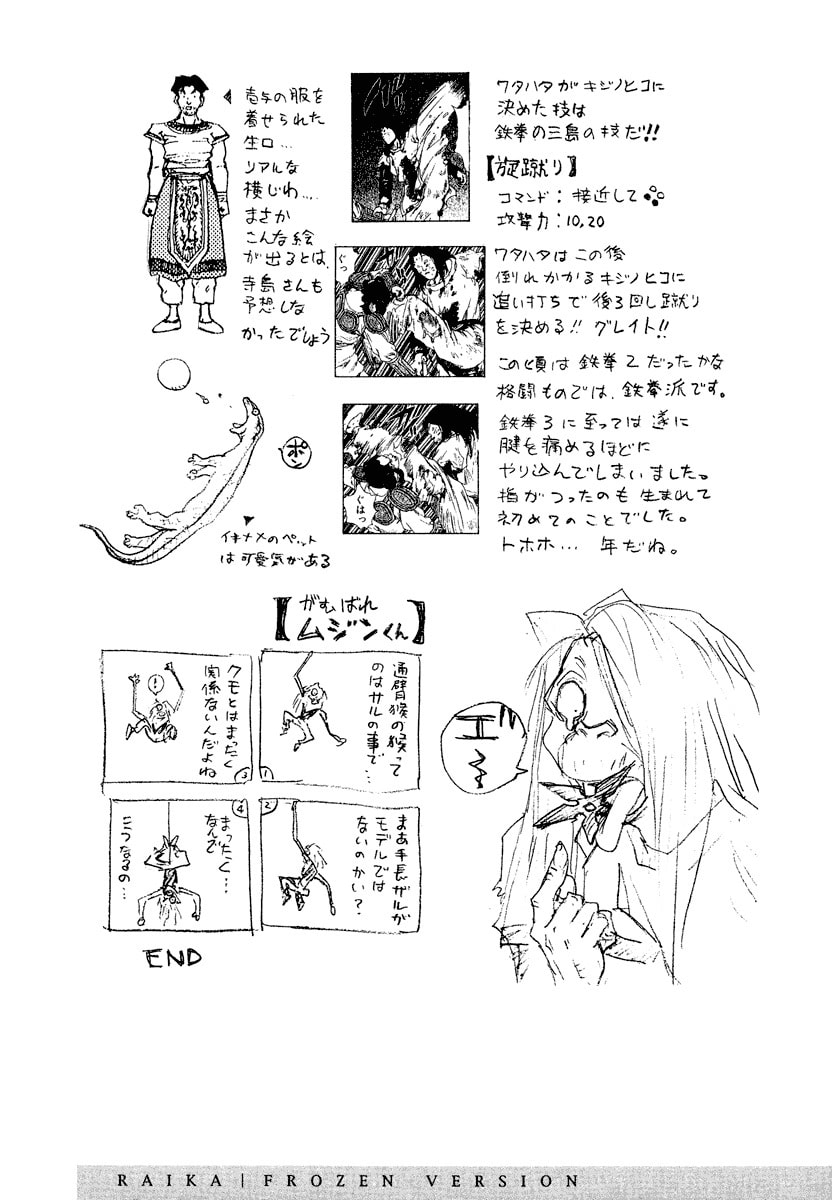 壱与の服を
着せられた
生口…
リアルな
横じわ….
まさか
こんな絵
が出るとは、
寺島さんも
予想しな
かったでしょう
ワタハタがキジノヒコに
決めた技は
鉄拳の三島の技だ!!
【旋蹴り】
コマンド：接近して
攻撃力：10,20
ワタハタはこの後
倒れかかるキジノヒコに
追い打ちで後ろ回し蹴り
を決める!! グレイト!!
この頃は鉄拳2だったかな
格闘ものでは、鉄拳派です。
鉄拳3に至っては遂に
腱を痛めるほどに
やり込んでしまいました。
指がつったのも生まれて
初めてのことでした。
トホホ… 年だね。
ぐっ
ぐはっ
ポン
イキナメのペット
は可愛気がある
【がむばれ
ムジンくん】
通臂猴の猴って
のはサルの事で…
1
まあ手長ザルが
モデルでは
ないのかい？
2
クモとはまったく
関係ないんだよね
!
3
まったく…
なんで
こうなるの…
4
END
RAIKA | FROZEN VERSION